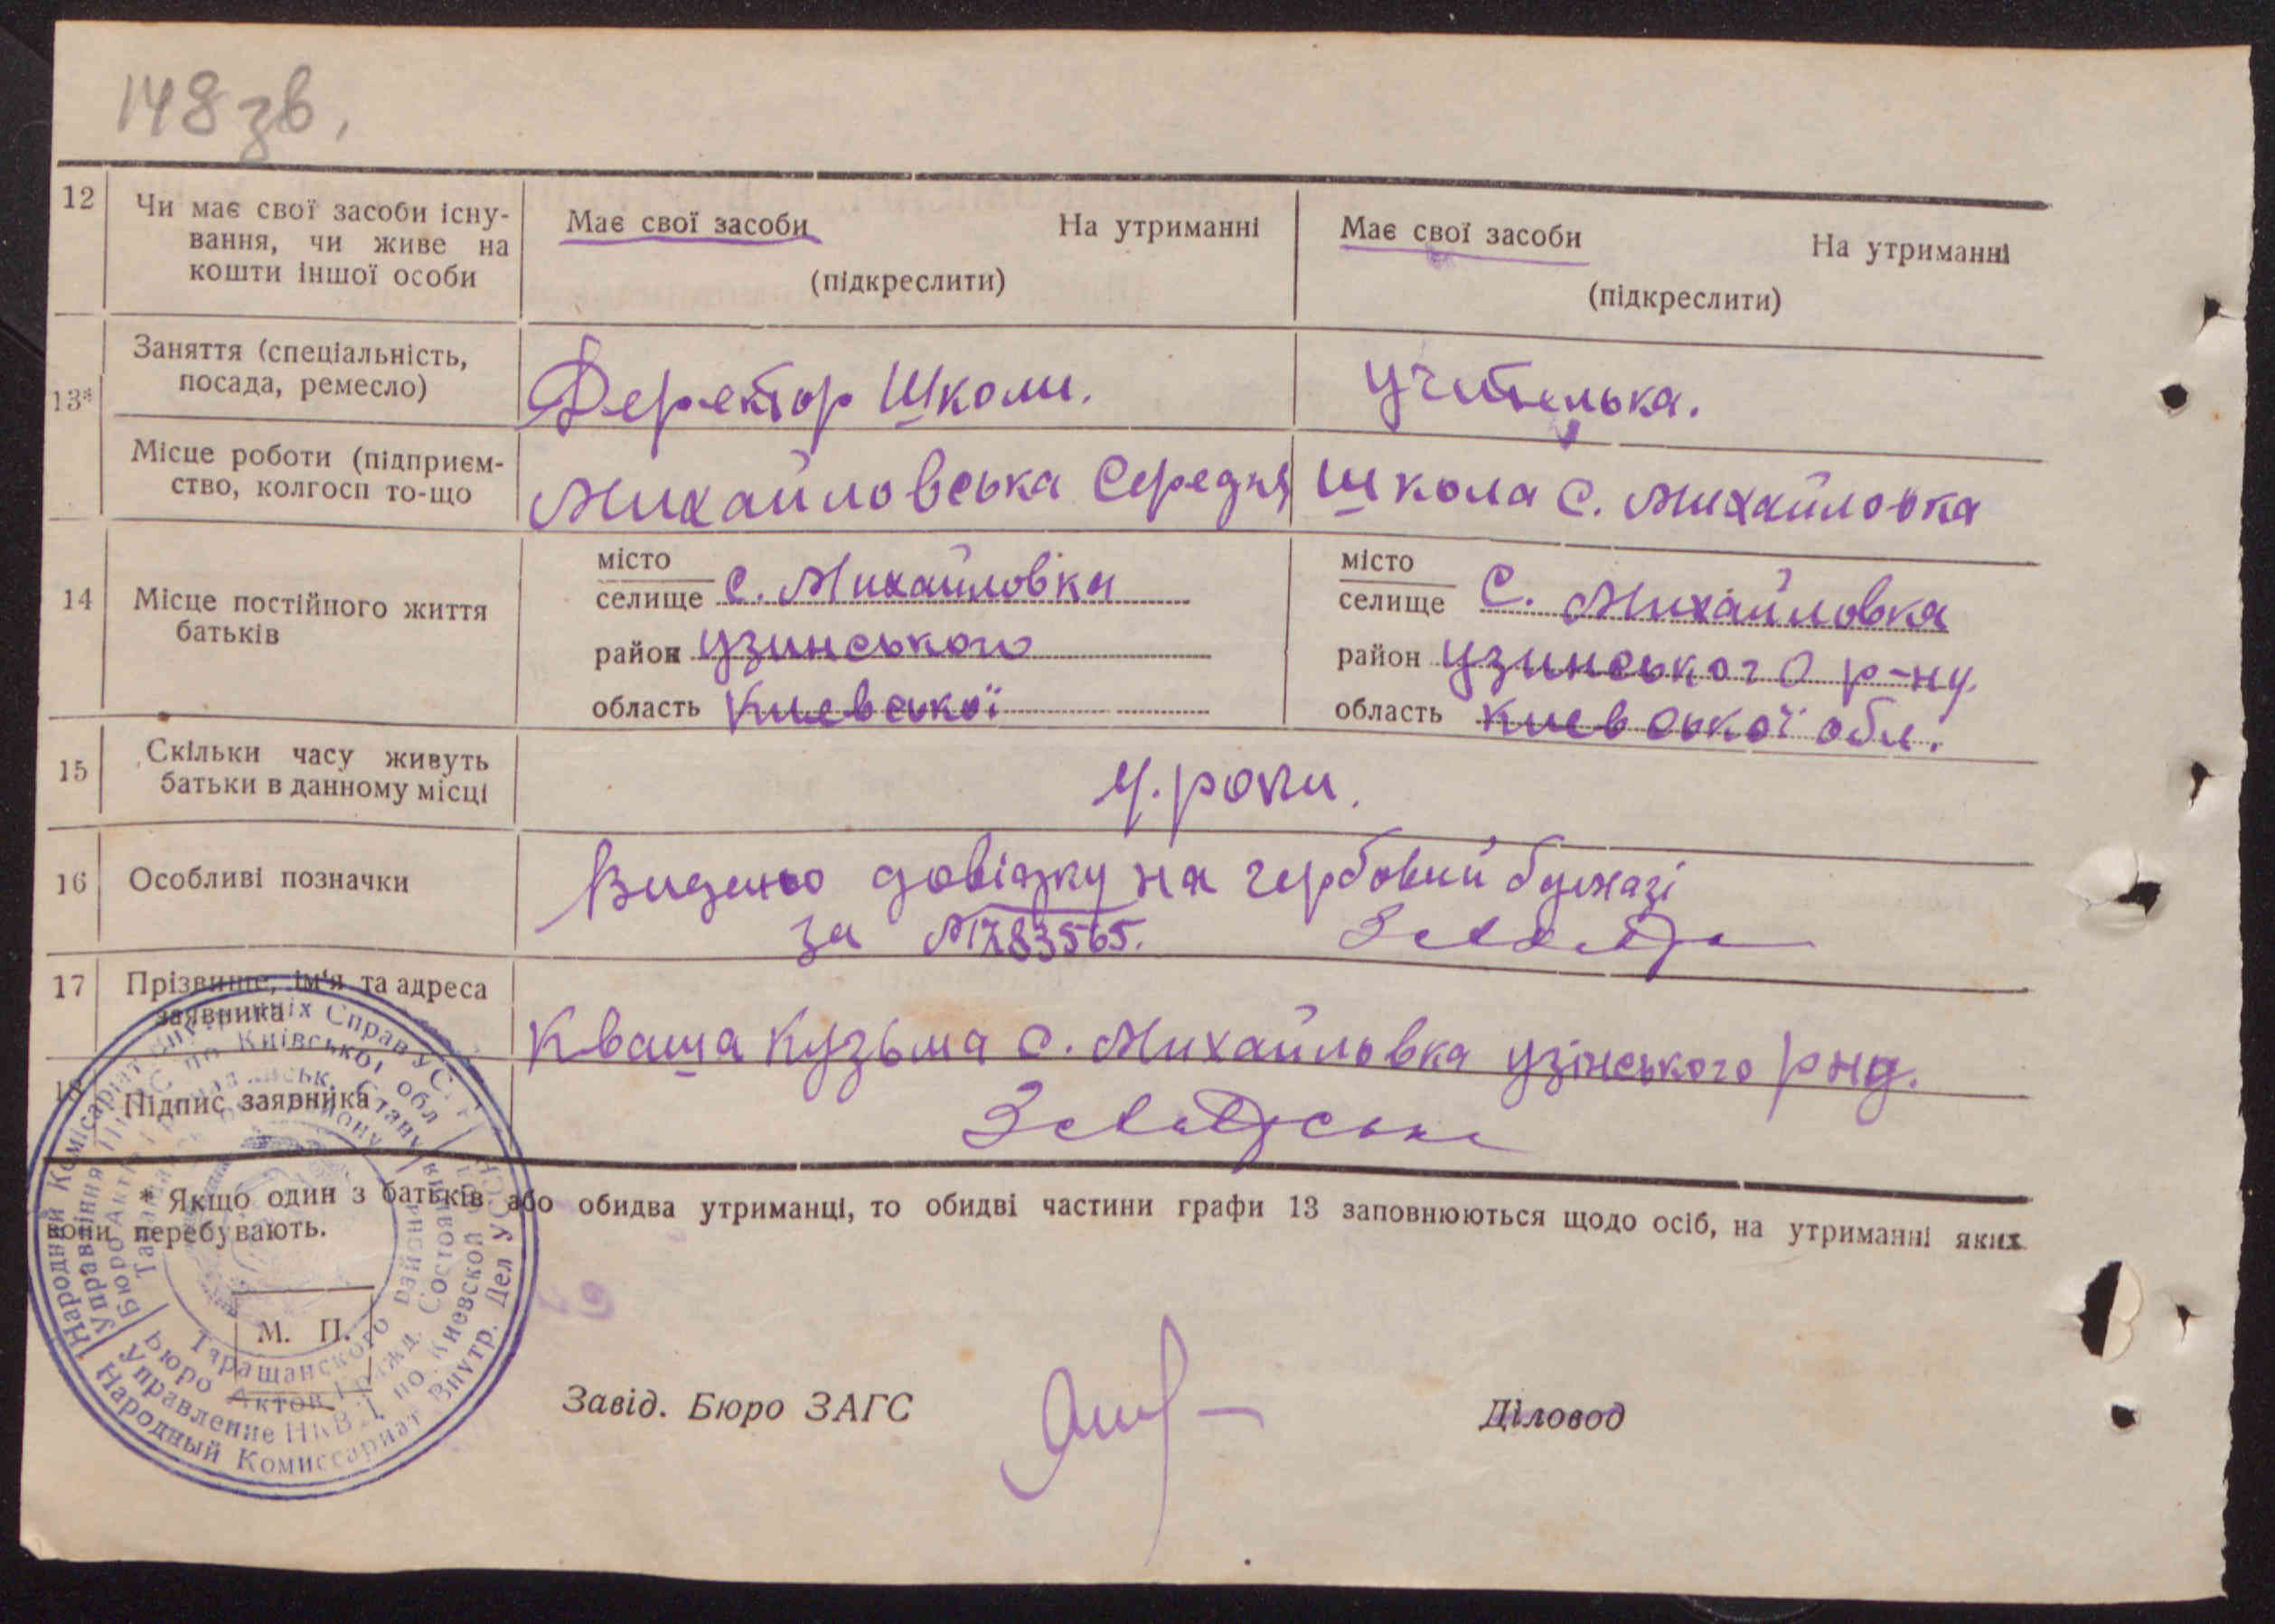 148 зв.
12 Чи має свої засоби існу- Має свої засоби На утриманні Має свої засоби На утриманні
вання, чи живе на
кошти іншої особи (підкреслити) (підкреслити)
13* Заняття (спеціальність, Деректор Школи. учителька.
посада, ремесло)
Місце роботи (підприєм- Михайловська Середня школа с. Михайловка
ство, колгосп то-що
14 Місце постійного життя батьків
місто
селище с. Михайловка
район узинського
область Киевської
місто
селище С. Михайловка
район узинського р-ну.
область Киевської обл.
15 Скільки часу живуть 4. роки.
батьки в данному місці
16 Особливі позначки Видано довідку на гербовий бумазі
за № 783565.
17 Прізвище, ім'я та адреса
заявника Кваша Кузьма с. Михайловка узінського рну.
18 Підпис заявника
* Якщо один з батьків або обидва утриманці, то обидві частини графи 13 заповнюються щодо осіб, на утриманні яких
вони перебувають.
М. П.
Завід. Бюро ЗАГС Діловод
Народний Комісаріат Внутрішніх Справ УСРР
Управління НКВС по Київській обл
Таращанского района
Бюро Актов Гражд. Состояния
Управление НКВД по Киевской
Народный Комиссариат Внутр. Дел УССР